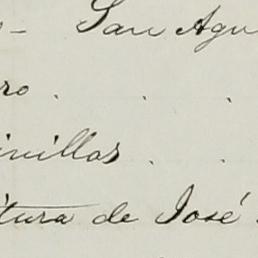 San Agu
ro . . .
inillas . .
itura de José